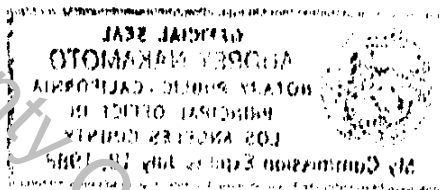 OFFICIAL SEAL
AUDREY NAKAMOTO
NOTARY PUBLIC - CALIFORNIA
PRINCIPAL OFFICE IN
LOS ANGELES COUNTY
My Commission Expires July 18, 1986